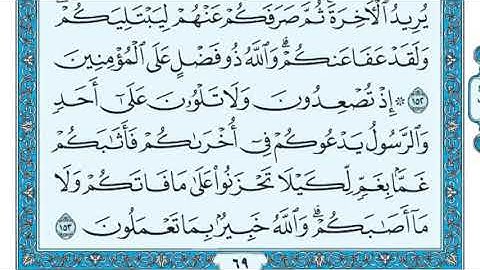 يُرِيدُ ٱلْأَخِرَةَ ثُمَّ صَرَفَكُمْ عَنْهُمْ لِيَبْتَلِيَكُمْ
وَلَقَدْ عَفَا عَنكُمْ ۗ وَٱللَّهُ ذُو فَضْلٍ عَلَى ٱلْمُؤْمِنِينَ
١٥٢ ۞ إِذْ تُصْعِدُونَ وَلَا تَلْوُۥنَ عَلَىٰٓ أَحَدٍ
وَٱلرَّسُولُ يَدْعُوكُمْ فِىٓ أُخْرَىٰكُمْ فَأَثَٰبَكُمْ
غَمًّۢا بِغَمٍّ لِّكَيْلَا تَحْزَنُوا۟ عَلَىٰ مَا فَاتَكُمْ وَلَا
مَآ أَصَٰبَكُمْ ۗ وَٱللَّهُ خَبِيرٌۢ بِمَا تَعْمَلُونَ ١٥٣
٦٩